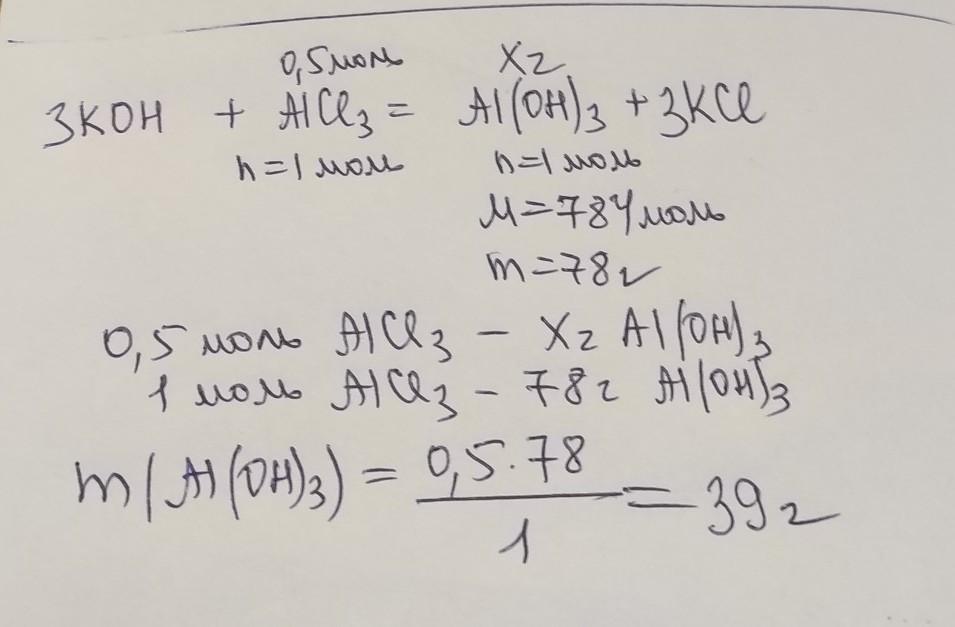 0,5 моль Xг
3KOH + AlCl₃ = Al(OH)₃ + 3KCl
n=1 моль n=1 моль
M=78 г/моль
m=78г
0,5 моль AlCl₃ – Xг Al(OH)₃
1 моль AlCl₃ – 78г Al(OH)₃
m(Al(OH)₃) = 0,5·78 / 1 = 39г